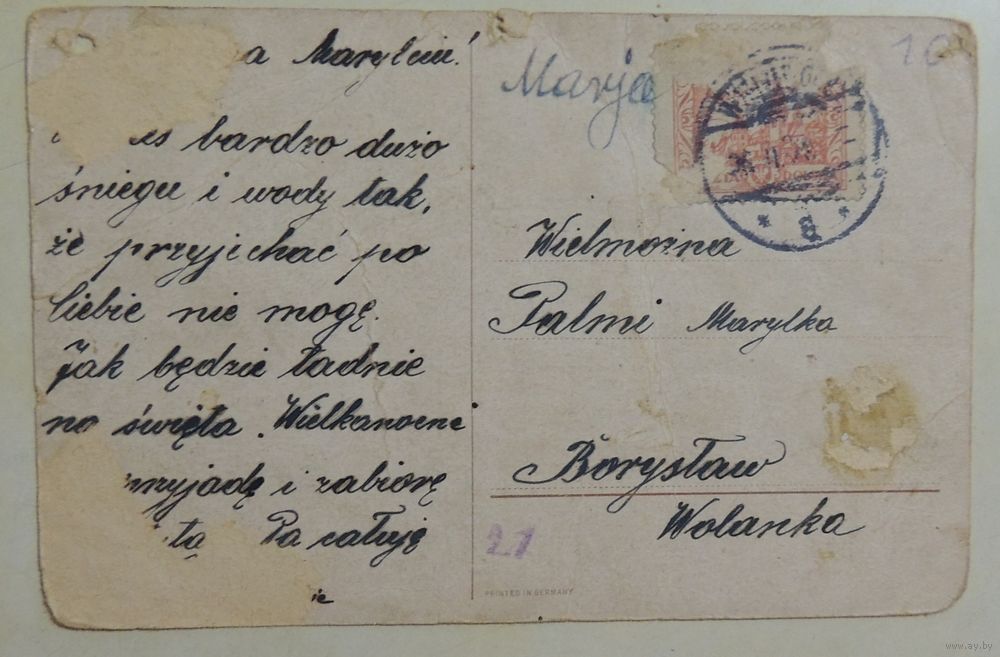 a Marylciu!
bardzo dużo
śniegu i wody tak,
że przyjechać po
Ciebie nie mogę.
Jak będzie ładnie
na święta Wielkanocne
przyjadę i zabiorę
tą Pa całuję
ie
Marja
10
Wielmożna
Palmi Marylka
Borysław
Wolanka
21
PRINTED IN GERMANY
www.ay.by